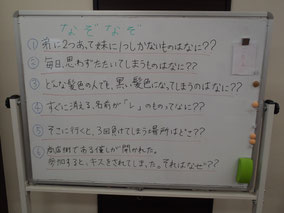 なぞなぞ
① 乳に2つあって妹に1つしかないものはなに??
② 毎日、思わずたたいてしまうものはなに??
③ どんな髪色の人でも、黒い髪色になってしまうのはなに??
④ すぐに消える、名前が「レ」のものってなに??
⑤ そこに行くと、3回負けてしまう場所はどこ??
⑥ 商店街である催しが開かれた。
参加すると、キスをされてしまった。それはなぜ??